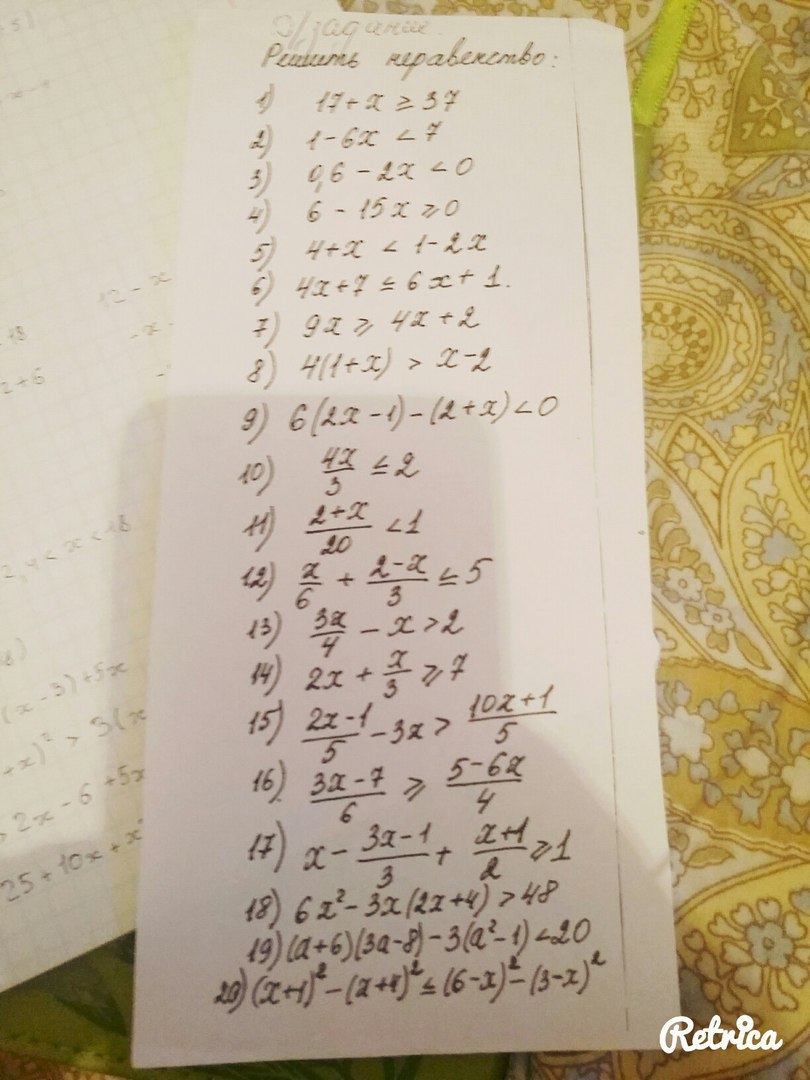 Д/задание.
Решить неравенство:
1) 17+x ≥ 37
2) 1-6x < 7
3) 0,6 - 2x < 0
4) 6 - 15x ≥ 0
5) 4+x < 1-2x
6) 4x+7 ≤ 6x+1.
7) 9x ≥ 4x+2
8) 4(1+x) > x-2
9) 6(2x-1)-(2+x)<0
10) 4x/3 ≤ 2
11) (2+x)/20 < 1
12) x/6 + (2-x)/3 ≤ 5
13) 3x/4 - x > 2
14) 2x + x/3 ≥ 7
15) (2x-1)/5 - 3x > (10x+1)/5
16) (3x-7)/6 ≥ (5-6x)/4
17) x - (3x-1)/3 + (x+1)/2 ≥ 1
18) 6x² - 3x(2x+4) > 48
19) (a+6)(3a-8) - 3(a²-1) < 20
20) (x+1)² - (x+4)² ≤ (6-x)² - (3-x)²
12 - x
2+6
2,4 < x < 18
(x-3)+5x
+x)² > 3(x
2x - 6 + 5x
25 + 10x + x²
Retrica